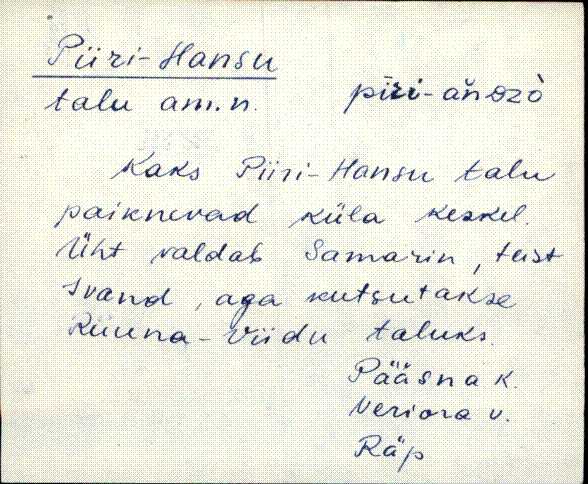 Piiri-Hansu
talu am.n. pīri-ǎnʚzò
Kaks Piiri-Hansu talu
paiknevad küla keskel.
Üht valdab Samarin, teist
Ivand, aga kutsutakse
Rüüna-Viidu taluks.
Pääsna k.
Veriora v.
Räp